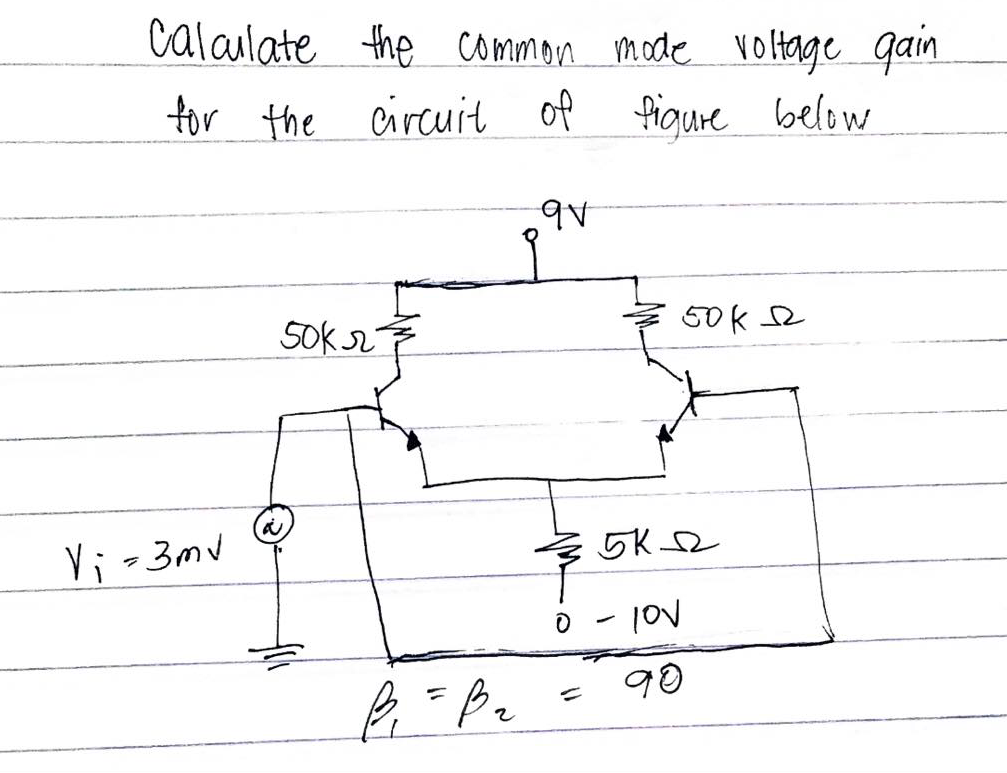 Calculate the common mode voltage gain
for the circuit of figure below
9V
50kΩ
50kΩ
Vi = 3mV
5KΩ
-10V
β1 = β2 = 90